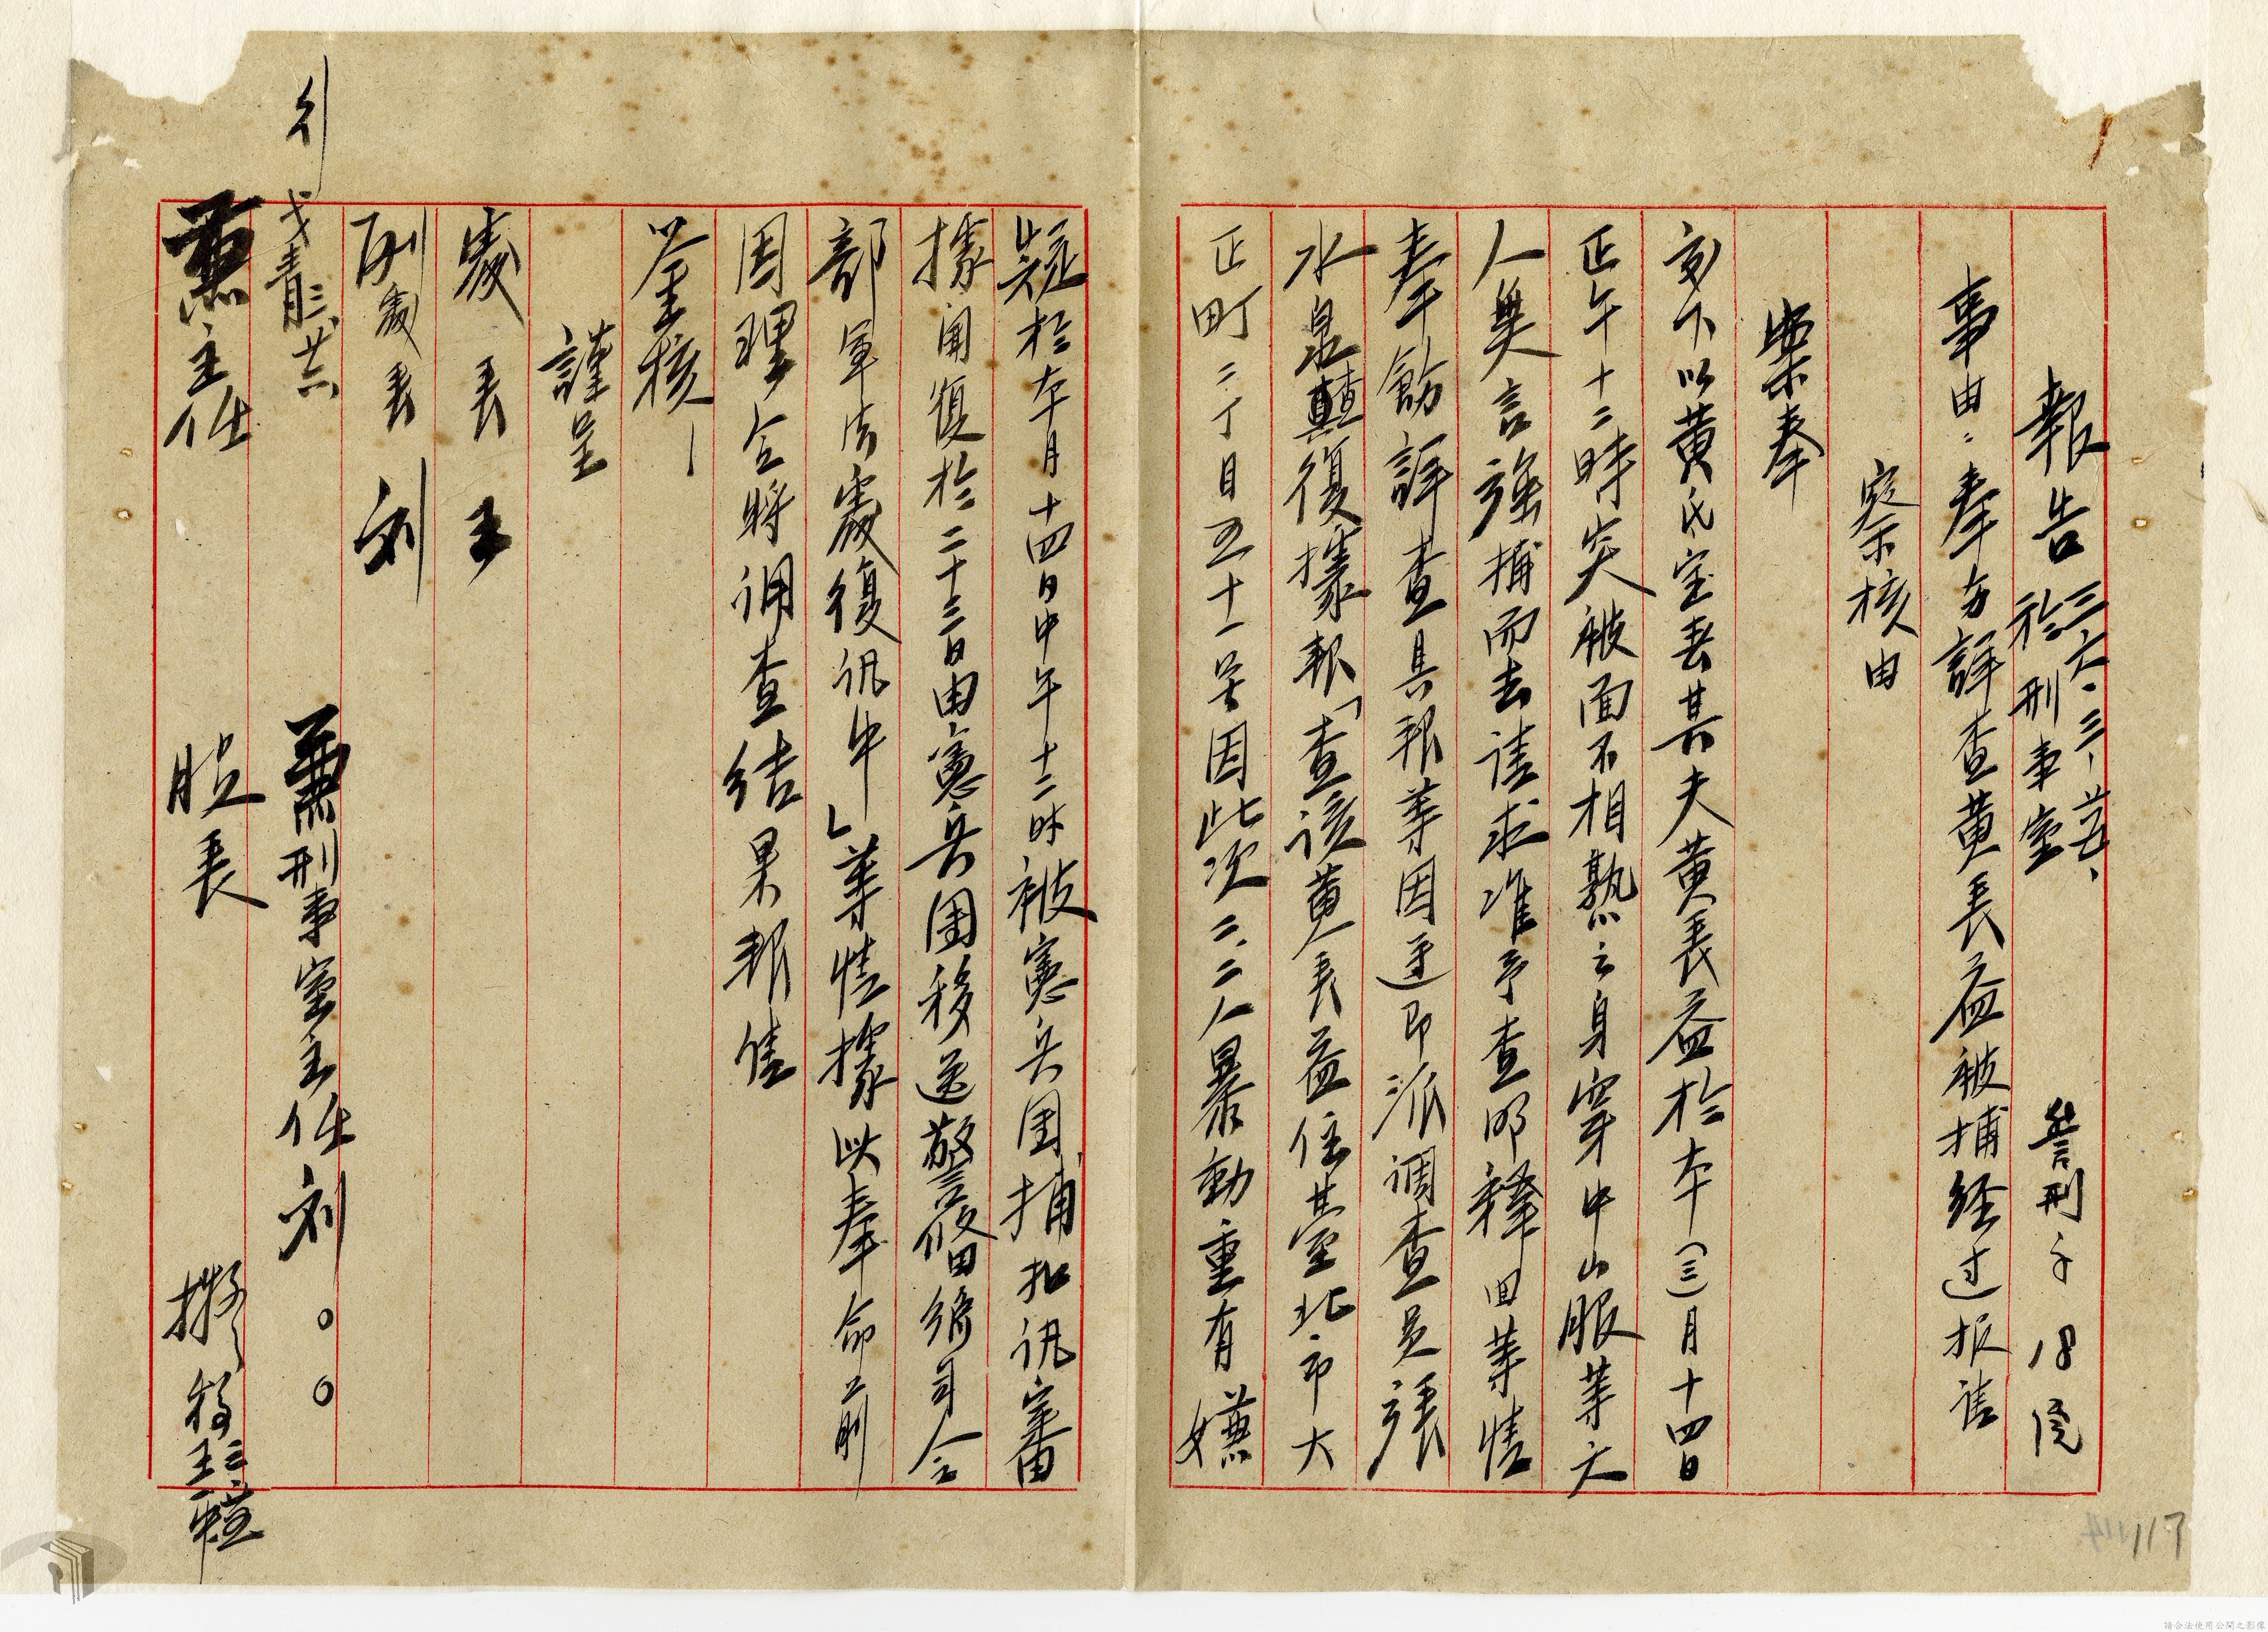 報告 三六、三、廿五、
於刑事室
警刑子18号
事由：奉交詳查黃長益被捕经过报请
察核由
案奉
交下以黃氏宝贵其夫黃長益於本(三)月十四日
正午十二時突被面不相熟云身穿中山服等六
人無言強捕而去请求准予查明釋回等情
奉飭詳查具報等因遵即派调查員張
水泉、顛復據報「查該黃長益住臺北市大
正町二丁目五十一号因此次二.二八暴動重有嫌
疑於本月十四日中午十二时被憲兵团捕扣讯審
據聞復於二十三日由憲兵團移送警备總司令
部軍法處復讯中」等情據此奉命前
因理合將调查结果報请
鉴核
謹呈
處長 王
副處長 刘
兼刑事室主任刘○○
兼主任
股長
擬稿
117
請合法使用公開之影像